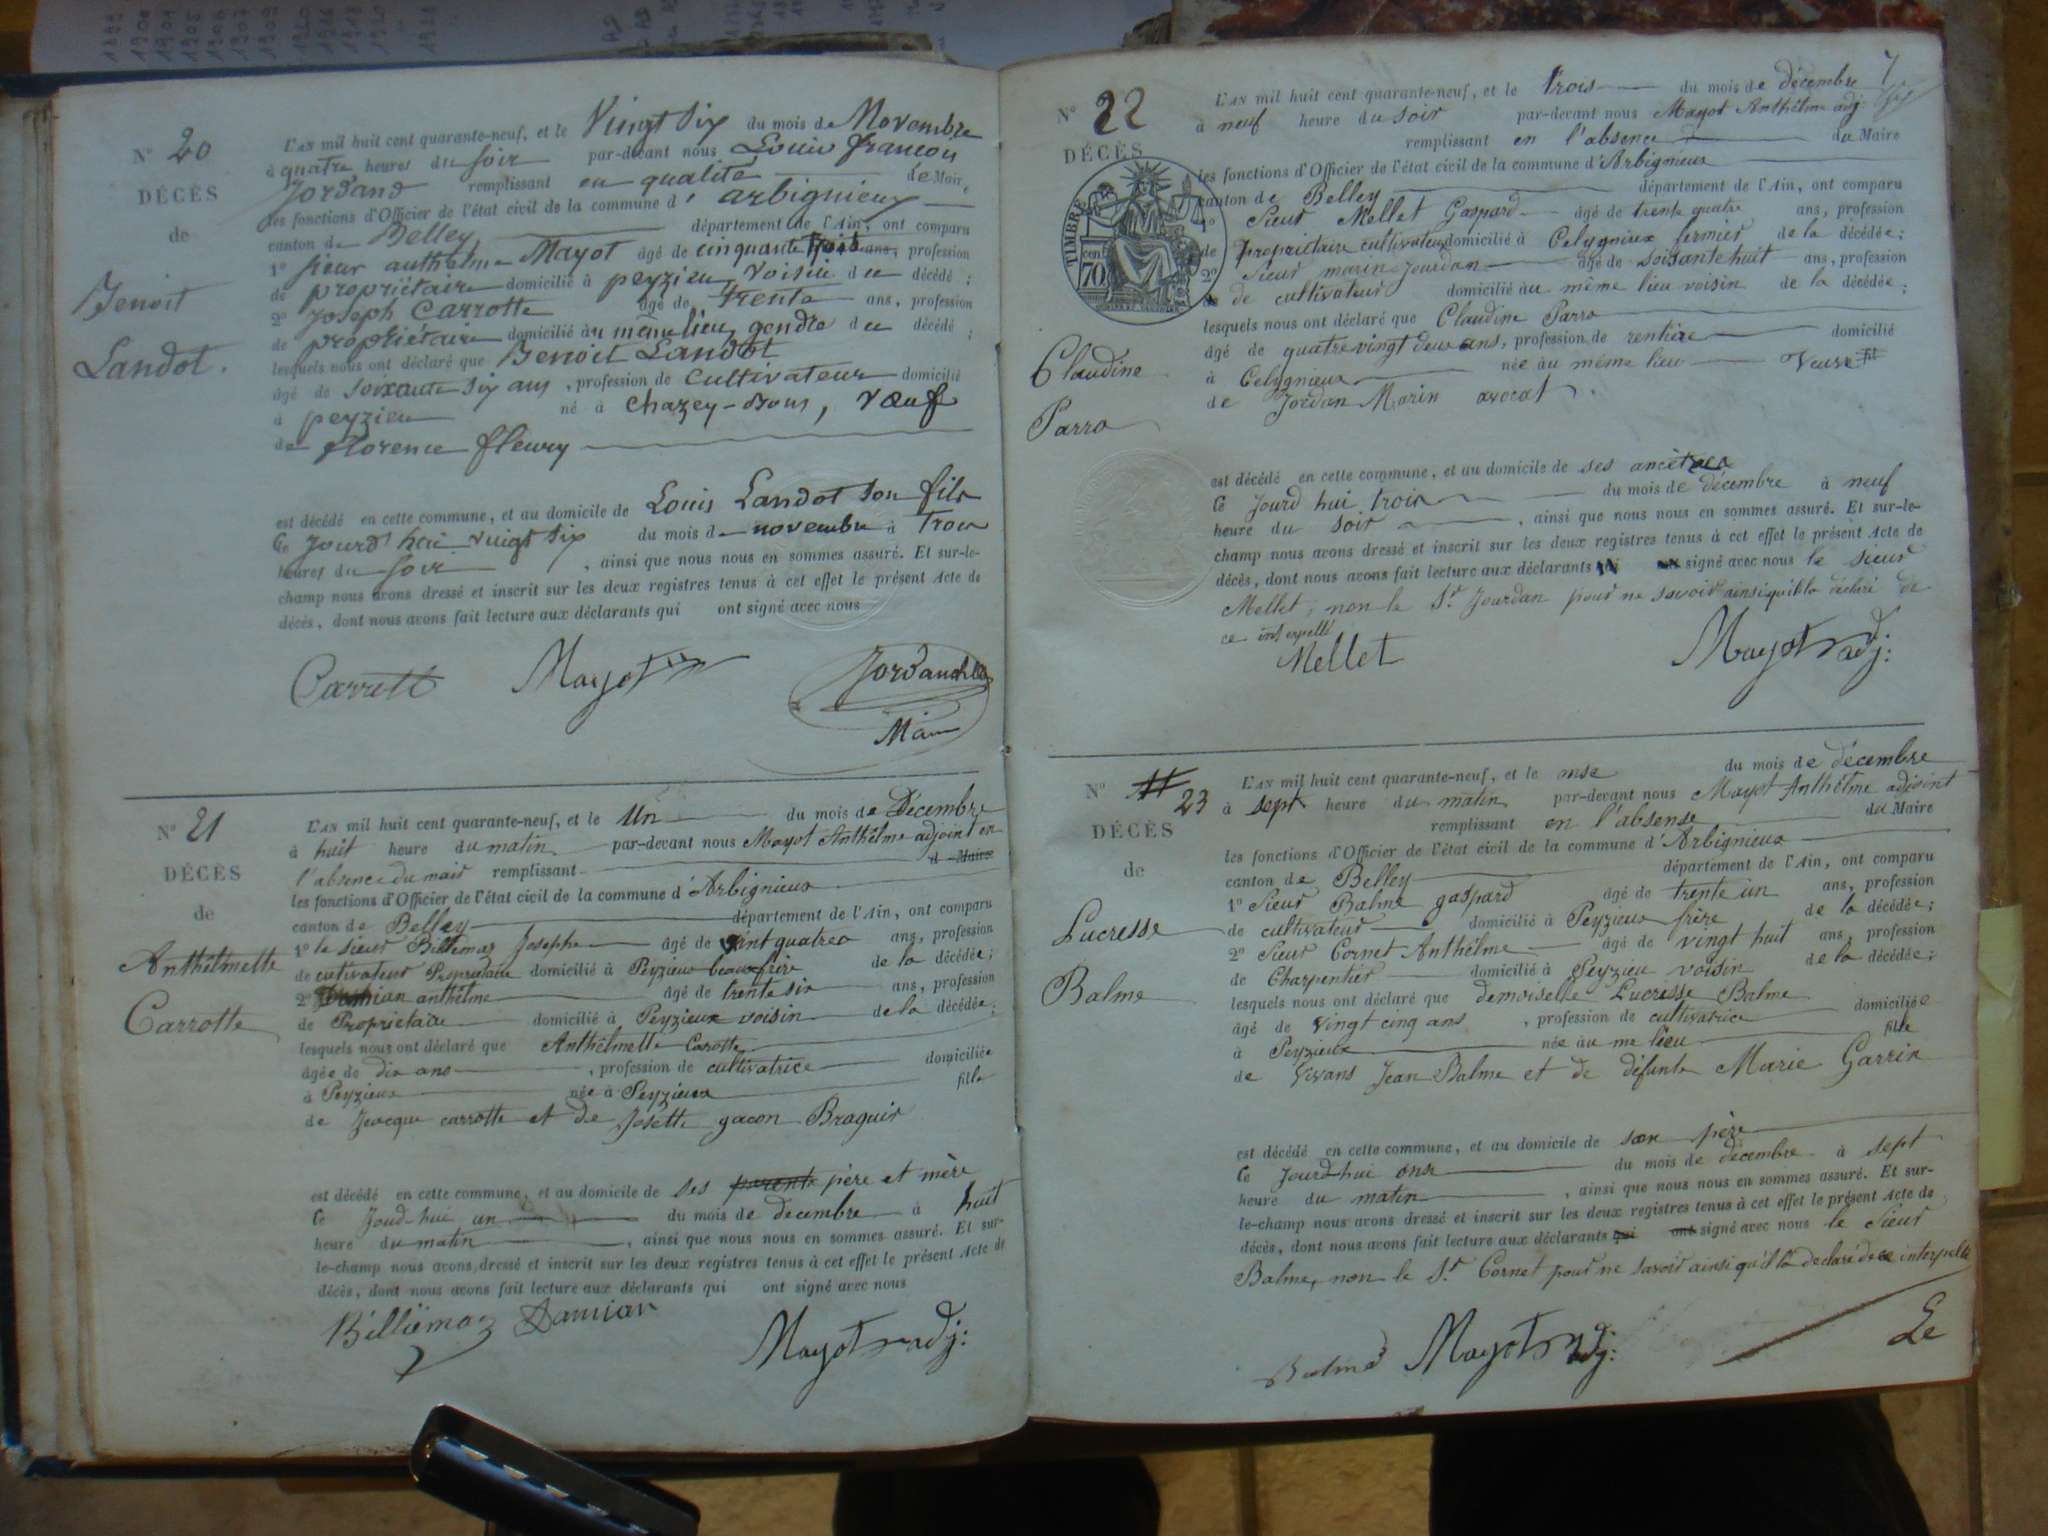 N° 20
DÉCÈS
de
Benoit
Landot.
L'AN mil huit cent quarante-neuf, et le Vingt six du mois de Novembre
à quatre heures du soir par-devant nous Louis françois
Jordand remplissant en qualité de Maire
les fonctions d'Officier de l'état civil de la commune d'arbignieux
canton de Belley département de l'Ain, ont comparu
1° sieur anthelme Mayot âgé de cinquante trois ans, profession
de propriétaire domicilié à peyzieu voisin du décédé ;
2° Joseph Carrotte âgé de trente ans, profession
de propriétaire domicilié au même lieu gendre du décédé ;
lesquels nous ont déclaré que Benoit Landot
âgé de soixante six ans, profession de cultivateur domicilié
à peyzieu né à chazey-bons, vœuf
de florence fleury
est décédé en cette commune, et au domicile de Louis Landot son fils
Ce jourd'hui vingt six du mois de novembre à trois
heures du soir, ainsi que nous nous en sommes assuré. Et sur-le-
champ nous avons dressé et inscrit sur les deux registres tenus à cet effet le présent Acte de
décès, dont nous avons fait lecture aux déclarants qui ont signé avec nous
Carrott Mayot Jordand
Maire
N° 21
DÉCÈS
de
Anthelmette
Carrotte
L'AN mil huit cent quarante-neuf, et le Un du mois de Décembre
à huit heure du matin par-devant nous Mayot Anthelme adjoint en
l'absence du mair remplissant d Maire
les fonctions d'Officier de l'état civil de la commune d'Arbignieux
canton de Belley département de l'Ain, ont comparu
1° le sieur Billiemaz Josephe âgé de vint quatre ans, profession
de cultivateur Proprietaire domicilié à Peyzieux beau frère de la décédée ;
2° Damian anthelme âgé de trente six ans, profession
de Proprietaire domicilié à Peyzieux voisin de la décédée ;
lesquels nous ont déclaré que Anthelmette Carotte
âgée de dix ans, profession de cultivatrice domiciliée
à Peyzieux née à Peyzieux fille
de Jacque carrotte et de Josette gacon Braguis
est décédé en cette commune, et au domicile de ses parents père et mère
Ce Joud-hui un du mois de decembre à huit
heure du matin, ainsi que nous nous en sommes assuré. Et sur-
le-champ nous avons dressé et inscrit sur les deux registres tenus à cet effet le présent Acte de
décès, dont nous avons fait lecture aux déclarants qui ont signé avec nous
Billiemaz Damian
Mayot adj:
7
N° 22
DÉCÈS
TIMBRE
70
Claudine
Parra
L'AN mil huit cent quarante-neuf, et le trois du mois de décembre
à neuf heure du soir par-devant nous Mayot Anthelme adj:
remplissant en l'absence du Maire
les fonctions d'Officier de l'état civil de la commune d'Arbignieux
canton de Belley département de l'Ain, ont comparu
1° Sieur Mellet Gaspard âgé de trente quatre ans, profession
de Propriétaire cultivateur domicilié à Celygnieux fermier de la décédée ;
2° Sieur marin Jourdan âgé de soisante huit ans, profession
de cultivateur domicilié au même lieu voisin de la décédée ;
lesquels nous ont déclaré que Claudine Parra
âgé de quatre vingt deux ans, profession de rentière domicilié
à Celygnieux née au même lieu Veuve
de Jordan Marin avocat.
est décédé en cette commune, et au domicile de ses ancètres
Ce Jourd hui trois du mois de décembre à neuf
heure du soir, ainsi que nous nous en sommes assuré. Et sur-le-
champ nous avons dressé et inscrit sur les deux registres tenus à cet effet le présent Acte de
décès, dont nous avons fait lecture aux déclarants signé avec nous le sieur
Mellet, non le Sr Jourdan pour ne savoir ainsi qu'il la déclaré de
ce interpellé
Mellet Mayot adj:
N° 11 23
DÉCÈS
de
Lucresse
Balme
L'AN mil huit cent quarante-neuf, et le onse du mois de décembre
à sept heure du matin par-devant nous Mayot Anthelme adjoint
remplissant en l'absense du Maire
les fonctions d'Officier de l'état civil de la commune d'Arbignieux
canton de Belley département de l'Ain, ont comparu
1° Sieur Balme gaspard âgé de trente un ans, profession
de cultivateur domicilié à Peyzieux frère de la décédée ;
2° Sieur Cornet Anthelme âgé de vingt huit ans, profession
de Charpentier domicilié à Peyzieu voisin de la décédée ;
lesquels nous ont déclaré que demoiselle Lucresse Balme
âgé de vingt cinq ans, profession de cultivatrice domiciliée
à Peyzieux née au me lieu fille
de vivans Jean Balme et de défunte Marie Garrin
est décédé en cette commune, et au domicile de son père
Ce Jourdhui onse du mois de decembre à sept
heure du matin, ainsi que nous nous en sommes assuré. Et sur-
le-champ nous avons dressé et inscrit sur les deux registres tenus à cet effet le présent Acte de
décès, dont nous avons fait lecture aux déclarants qui ont signé avec nous le Sieur
Balme, non le Sr Cornet pour ne savoir ainsi qu'il la declaré de ce interpellé
Balme Mayot adj: Le